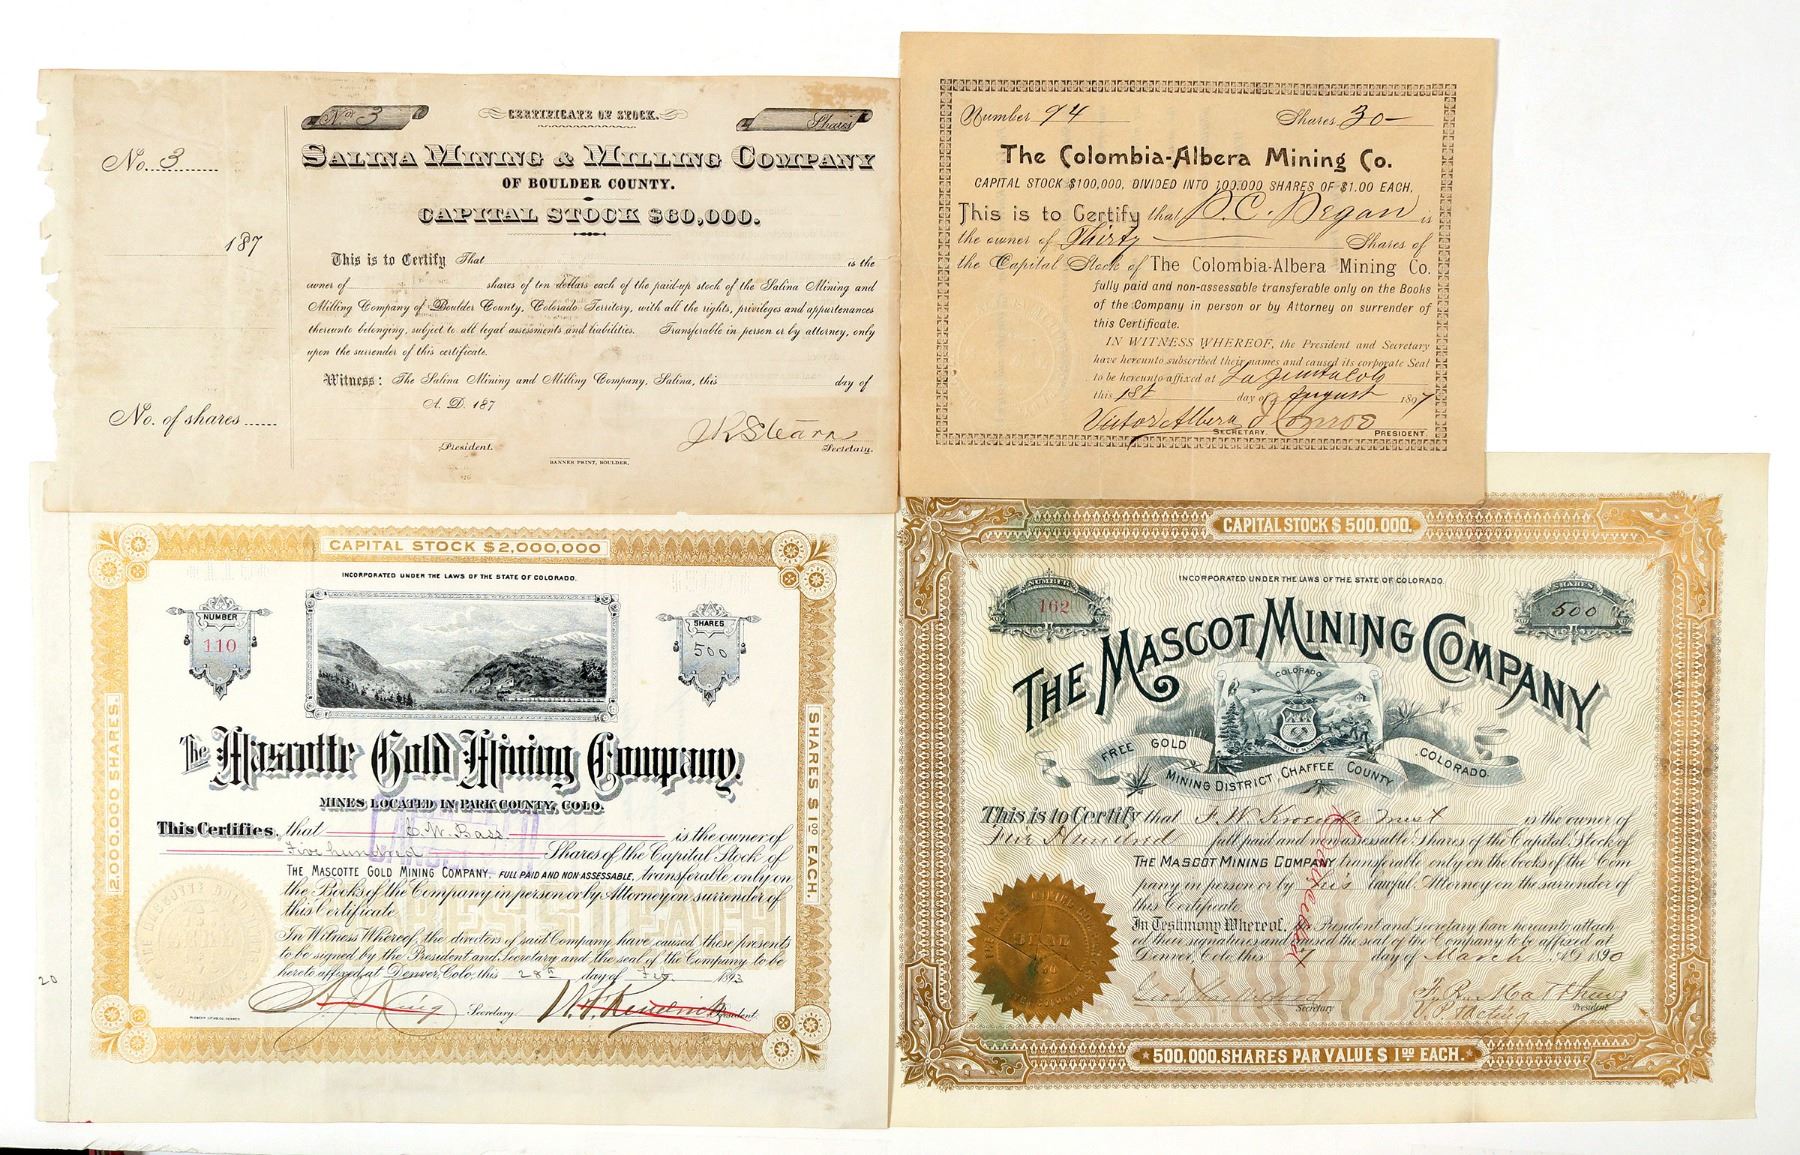 No. 3
187
No. of shares
No. 3
CERTIFICATE OF STOCK.
Shares
SALINA MINING & MILLING COMPANY
OF BOULDER COUNTY.
CAPITAL STOCK $60,000.
This is to Certify That is the
owner of shares of ten dollars each of the paid-up stock of the Salina Mining and
Milling Company of Boulder County, Colorado Territory, with all the rights, privileges and appurtenances
thereunto belonging, subject to all legal assessments and liabilities. Transferable in person or by attorney, only
upon the surrender of this certificate.
Witness: The Salina Mining and Milling Company, Salina, this day of
A. D. 187
President.
Secretary.
BANNER PRINT, BOULDER.
Number 94 Shares 30
The Colombia-Albera Mining Co.
CAPITAL STOCK $100,000, DIVIDED INTO 100,000 SHARES OF $1.00 EACH.
This is to Certify that P. C. Degan is
the owner of Thirty Shares of
the Capital Stock of The Colombia-Albera Mining Co.
fully paid and non-assessable transferable only on the Books
of the Company in person or by Attorney on surrender of
this Certificate.
IN WITNESS WHEREOF, the President and Secretary
have hereunto subscribed their names and caused its corporate Seal
to be hereunto affixed at La Junta Colo
this 1st day of August 1897
Victor Albera
SECRETARY.
PRESIDENT.
CAPITAL STOCK $2,000,000
INCORPORATED UNDER THE LAWS OF THE STATE OF COLORADO.
NUMBER
110
SHARES
500
2,000,000 SHARES.
SHARES $1.00 EACH.
The Mascotte Gold Mining Company.
MINES LOCATED IN PARK COUNTY, COLO.
This Certifies, that C. W. Bass is the owner of
Five hundred Shares of the Capital Stock of
THE MASCOTTE GOLD MINING COMPANY, FULL PAID AND NON-ASSESSABLE, transferable only on
the Books of the Company in person or by Attorney on surrender of
this Certificate.
In Witness Whereof, the directors of said Company have caused these presents
to be signed by the President and Secretary and the seal of the Company to be
hereto affixed, at Denver, Colo, this 28th day of Feb 1893
Secretary.
President.
20
CAPITAL STOCK $ 500.000.
INCORPORATED UNDER THE LAWS OF THE STATE OF COLORADO.
NUMBER
162
SHARES
500
THE MASCOT MINING COMPANY
COLORADO
FREE GOLD
MINING DISTRICT, CHAFFEE COUNTY
COLORADO.
This is to Certify that F. W. is the owner of
Five Hundred full paid and non-assessable Shares of the Capital Stock of
THE MASCOT MINING COMPANY transferable only on the books of the Com
pany in person or by his lawful Attorney on the surrender of
this Certificate.
In Testimony Whereof, the President and Secretary have hereunto attach
ed their signatures and caused the seal of the Company to be affixed at
Denver, Colo, this 7 day of March AD 1890
Secretary
President
SEAL
500.000. SHARES PAR VALUE $1.00 EACH.